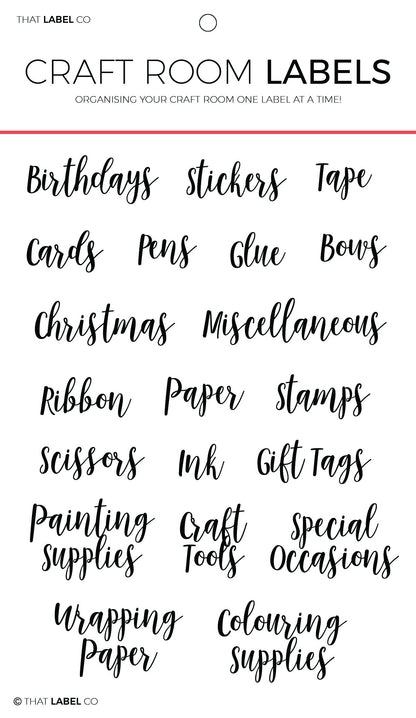 THAT LABEL CO
CRAFT ROOM LABELS
ORGANISING YOUR CRAFT ROOM ONE LABEL AT A TIME!
Birthdays stickers Tape
Cards Pens Glue Bows
Christmas Miscellaneous
Ribbon Paper stamps
scissors Ink Gift Tags
Painting Craft special
supplies Tools Occasions
Wrapping Colouring
Paper supplies
© THAT LABEL CO